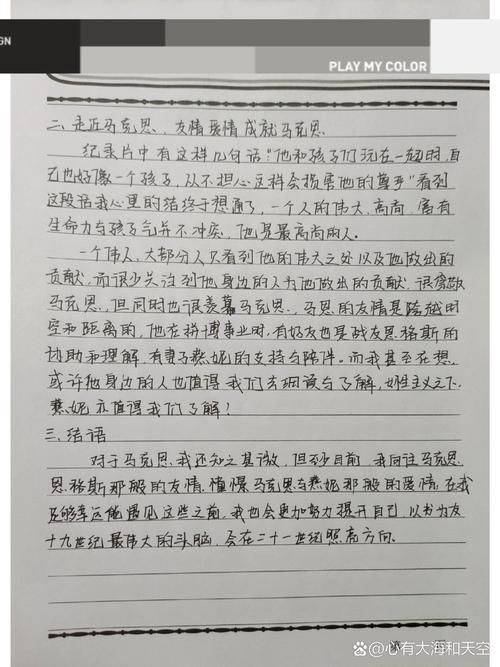 GN
PLAY MY COLOR
二、走近马克思,友情爱情成就马克思
纪录片中有这样几句话:"他和孩子们玩在一起时,自
己也好像一个孩子,从不担心这样会损害他的尊严"看到
这段话我心里的结终于想通了,一个人的伟大、高尚、富有
生命力与孩子气并不冲突,他是最高尚的人。
一个伟人,大部分人只看到他的伟大之处以及他做出的
贡献,而很少关注到他身边的人为他做出的贡献。很佩
马克思,但同时也很羡慕马克思,马恩的友情是跨越时
空和距离的,他在拼搏事业时,有好友也是战友恩格斯的
协助和理解,有妻子燕妮的支持与陪伴。而我甚至在想,
或许他身边的人也值得我们去细读与了解,女性主义之下
燕妮亦值得我们了解?
三、结语
对于马克思,我还知之甚微,但至少目前,我向往马克思
恩格斯那般的友情,憧憬马克思与燕妮那般的爱情,在我
足够幸运能遇见这些之前,我也会更加努力提升自己,以书为友
十九世纪最伟大的头脑,会在二十一世纪照亮方向。
@心有大海和天空